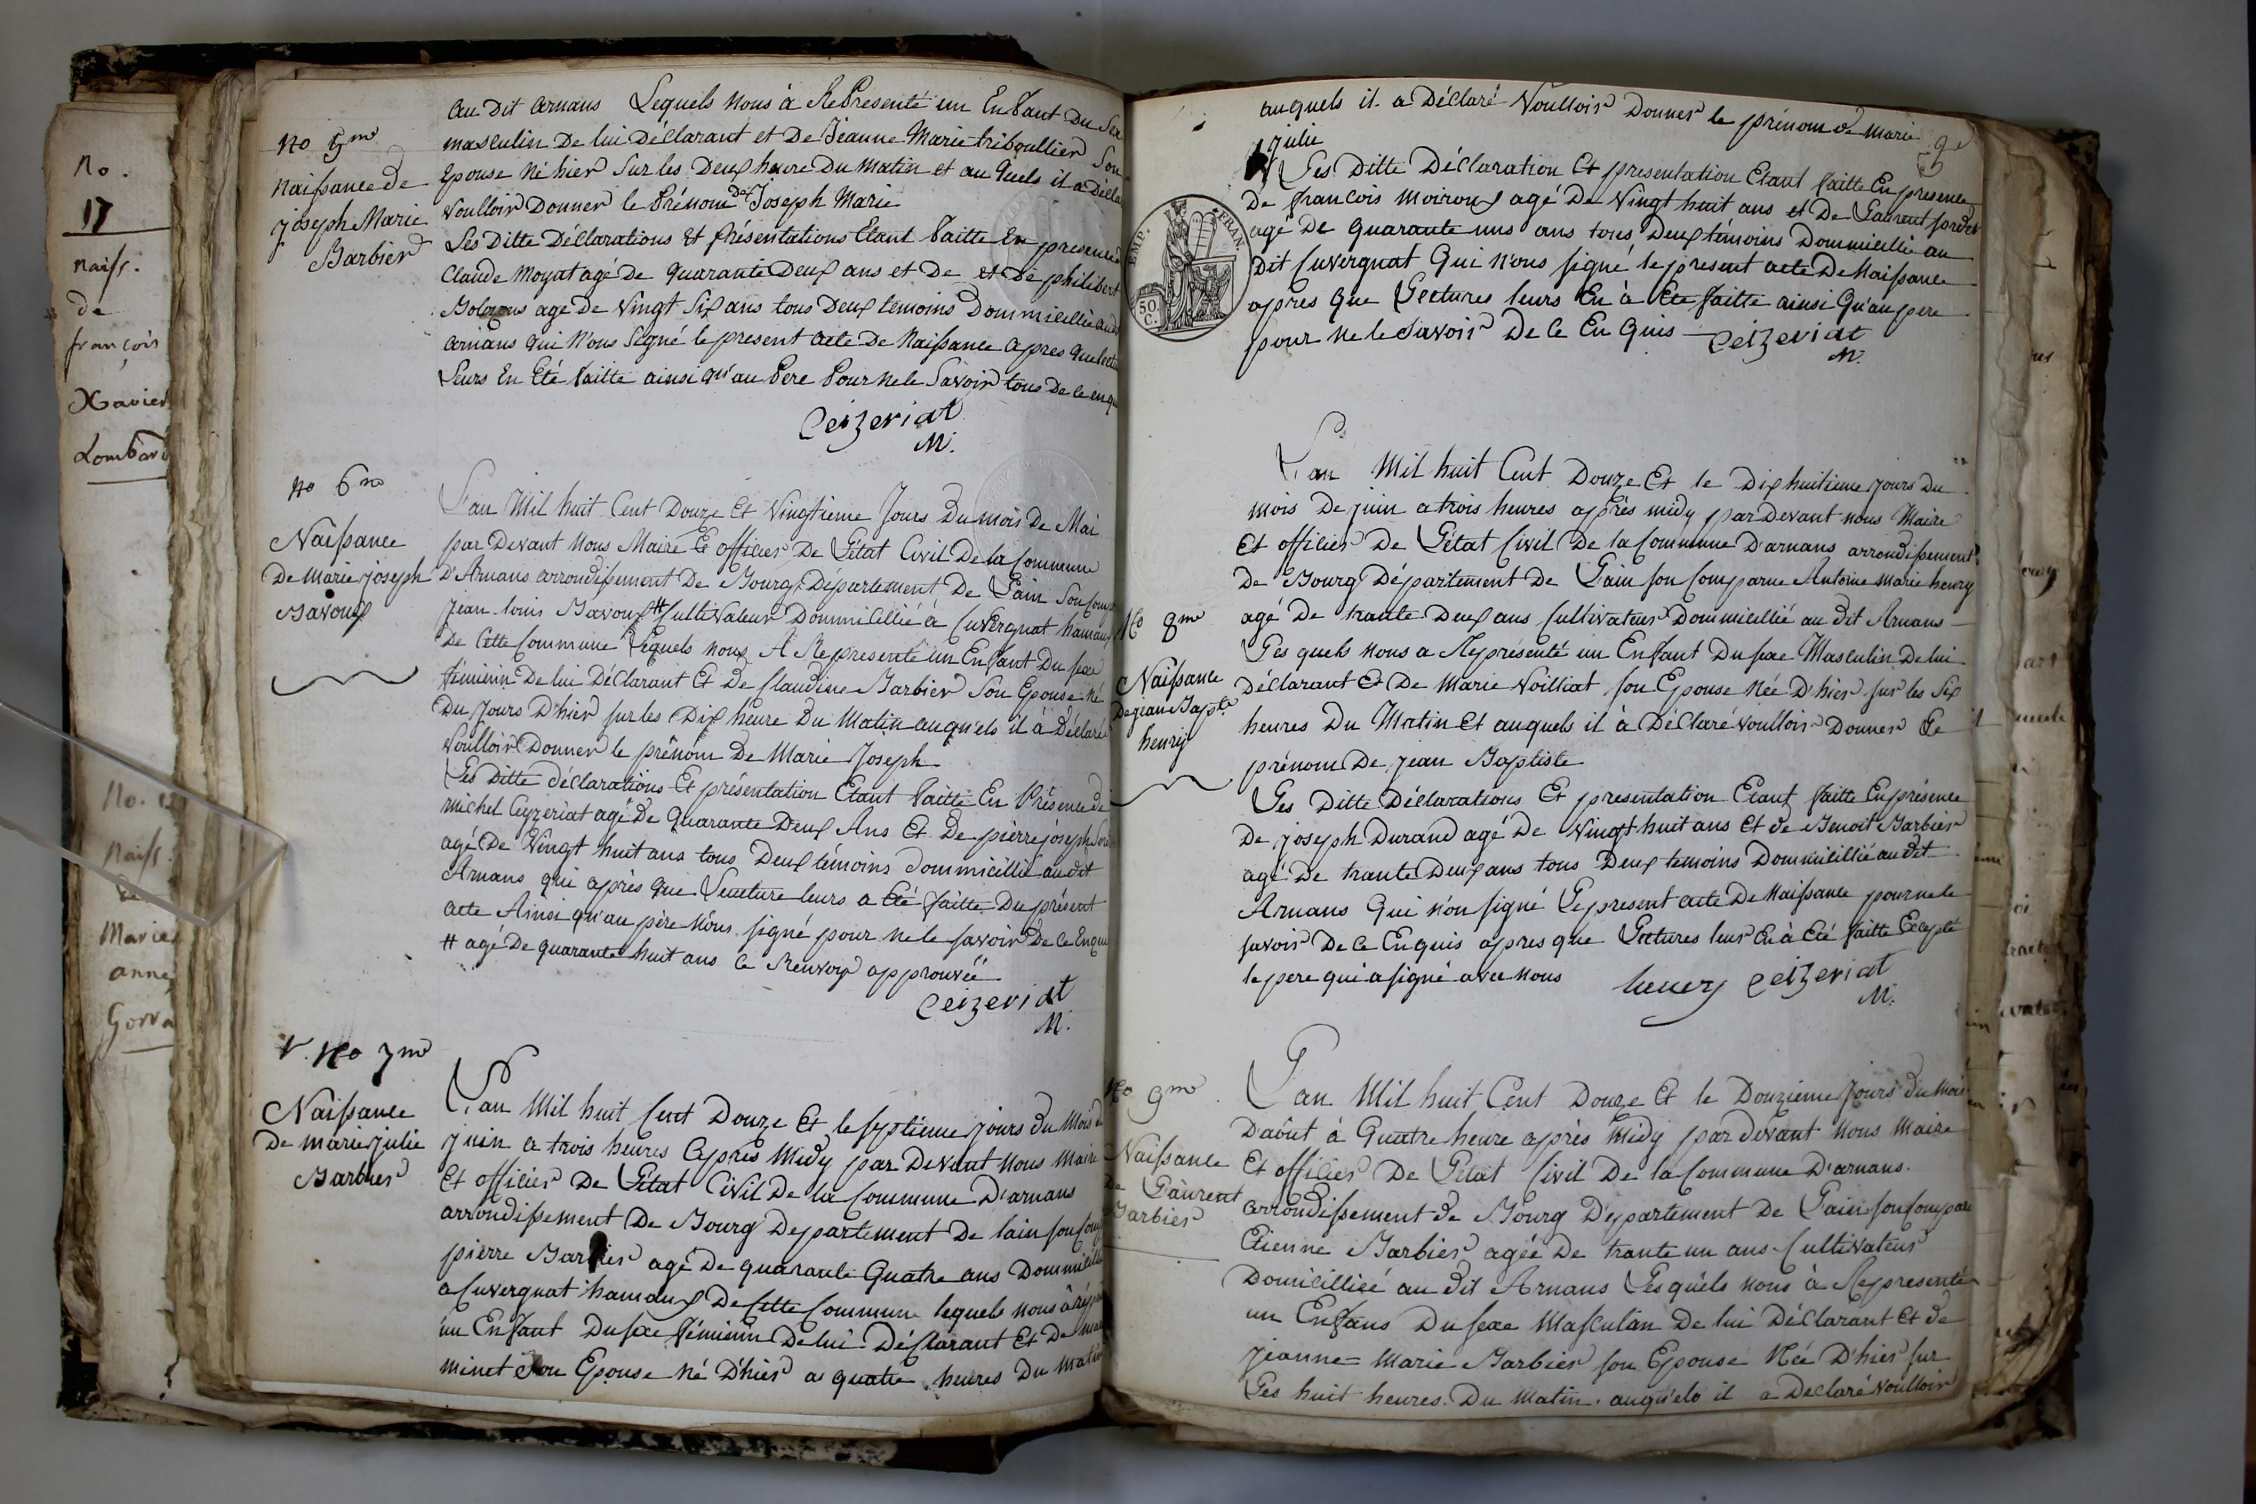 No.
17
naiss.
de
françois
Xavier
Lombard
No.
Naiss.
de
Marie
anne
Gorra
no 5me
naissance de
joseph Marie
Barbier
au dit arnans Lequels nous à Représenté un Enfant Du Sex
masculin De lui Déclarant et De Jeanne Marie triboullier Son
Epouse né hier Sur les Deux heure Du matin et au quels il a Décla
Voulloir Donner le Prénom De Joseph Marie
Les Ditte Déclarations Et Présentations Etant Faitte En presence
Claude Moyat agé de quarante Deux ans et De et De philibert
Bolozons agé de Vingt Six ans tous Deux temoins Dommicillié au
arnans qui N'ous Signé le present acte De Naissance apres que
Leurs En Eté Faitte ainsi qu'au Pere Pour ne le Savoir tous De ce enq
Ceizeriat
M.
no 6me
Naissance
De Marie joseph
Bavoux
L'an Mil huit Cent Douze Et Vingtieme Jours Du mois De Mai
par Devant Nous Maire Et officier De L'état Civil De la Commune
D'Arnans arrondissement De Bourg Département De L'ain Son Comp
Jean louis Bavoux # Cultivateur Dommicillié à Cuvergnat hamaux
De Cette Commune Lequels nous A Representé un Enfant Du sexe
féminin De lui Déclarant Et De Claudine Barbier Son Epouse Né
Du Jours D'hier sur les Dix heure Du Matin auqu'els il à Déclaré
Voulloir Donner le prénom De Marie Joseph
Les Ditte déclarations Et présentation Etant Faitte En Présence de
Michel Ceyzeriat agé De Quarante Deux Ans Et De pierre joseph
agé De Vingt huit ans tous Deux témoins Dommicillié au dit
Arnans qui après que Lecture leurs a Eté faitte Du présent
acte Ainsi qu'au père N'ous signé pour ne le savoir De ce Enqui
# agé De quarante huit ans Ce Renvoy approuvéé
Ceizeriat
M.
V. No 7me
Naissance
De marie julie
Barbier
L'an Mil huit Cent Douze Et le septieme jours du Mois
juin a trois heures Après Midy par Devant nous Maire
Et officier De L'état Civil De la Commune D'arnans
arrondissement De Bourg Departement De lain son
pierre Barbier agé De quarante Quatre ans Dommicillié
a Cuvergnat hamaux De Cette Commune lequels nous à
un Enfant Du sexe féminin De lui Déclarant Et De
minet Son Epouse Né D'hier a quatre heures Du Matin
auquels il a Déclaré Voulloir Donner le prénom de Marie
julie
Les Ditte Déclaration Et presentation Etant faitte En presence
De francois Moiroux agé De Vingt huit ans et De Laurent
agé De quarante uns ans tous Deux témoins Dommicillié au
Dit Cuvergnat Qui N'ous signé le present acte De Naissance
apres Que Lectures leurs En à Eté faitte ainsi Qu'au pere
pour Ne le Savoir De Ce En Quis Ceizeriat
M.
EMP. FRAN.
50
C.
No 8me
Naissance
De jean Bapte
henry
L'an Mil huit Cent Douze Et le Dix huitieme jours Du
mois De juin a trois heures après midy par Devant nous Maire
Et officier De L'état Civil De la Commune D'arnans arrondissement
De Bourg Département De L'ain son Comparue Antoine marie henry
agé De trante Deux ans Cultivateur Dommicillié au dit Arnans
Les quels nous a Représenté un Enfant Du sexe Masculin De lui
Déclarant Et De Marie Voilliat son Epouse Née D'hier sur les Six
heures Du Matin Et auquels il à Déclaré voulloir Donner Le
prénom De jean Baptiste
Les Ditte Déclarations Et presentation Etant faitte En présence
De joseph Durand agé De Vingt huit ans Et de Benoit Barbier
agé De trante Deux ans tous Deux temoins Dommicillié au dit
Arnans Qui n'on signé Le present acte De Naissance pour ne le
savoir De Ce Enquis apres que Lectures leur En à Eté faitte Ecepte
le pere qui a signé avec nous henry Ceizeriat
M.
No 9me
Naissance
De Laurent
Barbier
L'an Mil huit Cent Douze Et le Douzieme Jours Du Mois
Daôut à Quatre heure après Midy par devant Nous Maire
Et officier De L'état Civil De la Commune D'arnans.
arrondissement de Bourg Département De L'ain son Compare
Etienne Barbier agée De trante un ans Cultivateur
Domicilliéé au dit Arnans Lesqu'els nous à Representé
un Enfans Du sexe Masculan De lui Déclarant Et de
jeanne = Marie Barbier son Epouse Née D'hier sur
Les huit heures Du Matin. auqu'els il a Declaré Voulloir